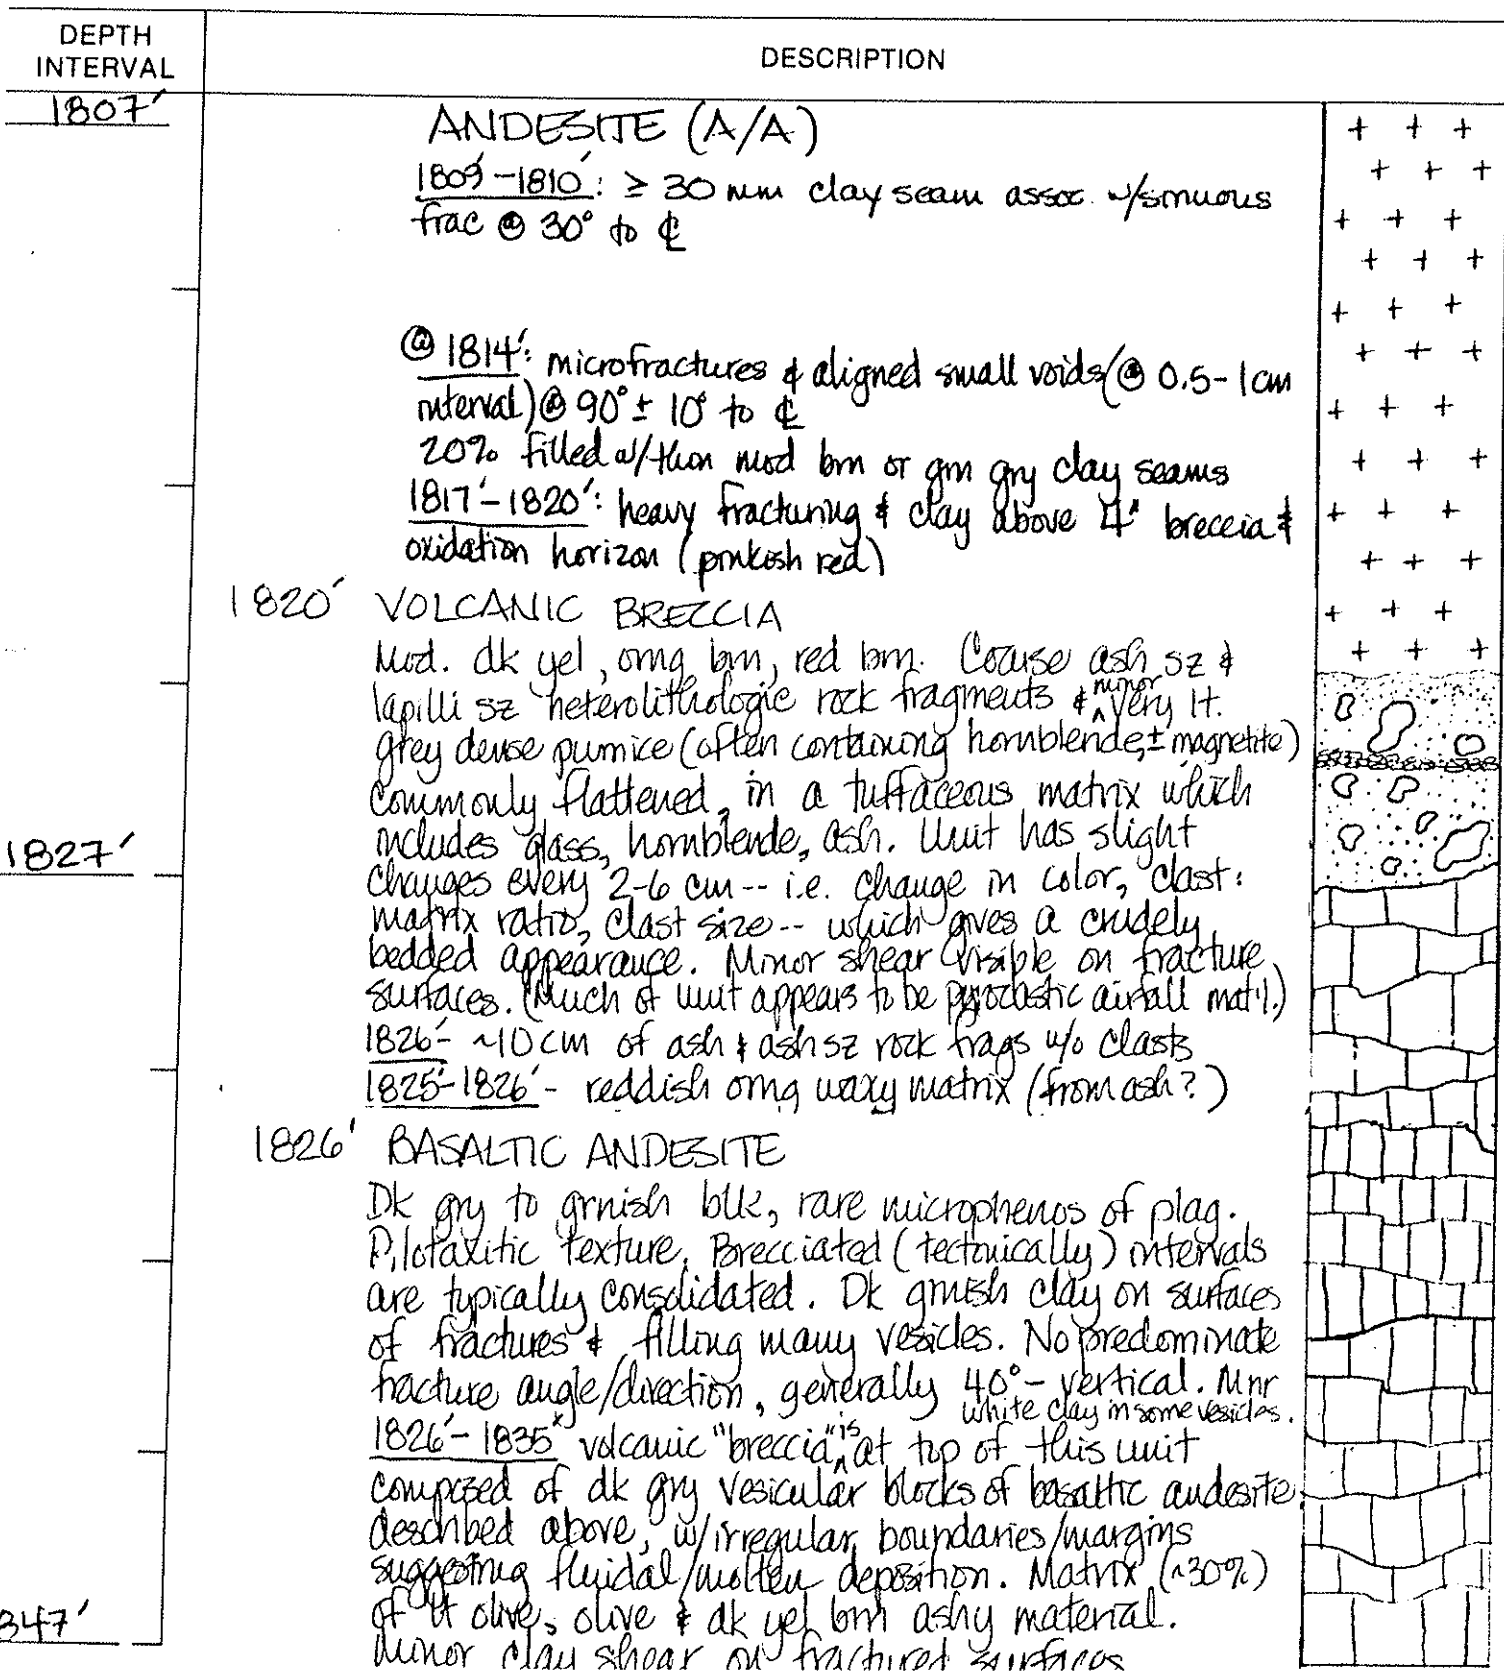 DEPTH INTERVAL
DESCRIPTION
1807'
ANDESITE (A/A)
1809'-1810': ≥ 30 mm clay seam assoc. w/sinuous
frac @ 30° to ℄
@ 1814': microfractures & aligned small voids (@ 0.5-1cm
interval) @ 90° ± 10° to ℄
20% filled w/thin mod brn or grn gry clay seams
1817'-1820': heavy fracturing & clay above 4" breccia &
oxidation horizon (pinkish red)
1820' VOLCANIC BRECCIA
Mod. dk yel, orng brn, red brn. Coarse ash sz &
lapilli sz heterolithologic rock fragments & minor very lt.
grey dense pumice (often containing hornblende, ± magnetite)
commonly flattened, in a tuffaceous matrix which
includes glass, hornblende, ash. Unit has slight
1827'
changes every 2-6 cm -- i.e. change in color, clast:
matrix ratio, clast size -- which gives a crudely
bedded appearance. Minor shear visible on fracture
surfaces. (Much of unit appears to be pyroclastic airfall mat'l.)
1826'- ~10cm of ash & ash sz rock frags w/o clasts
1825'-1826' - reddish orng waxy matrix (from ash?)
1826' BASALTIC ANDESITE
Dk gry to grnish blk, rare microphenos of plag.
Pilotaxitic texture. Brecciated (tectonically) intervals
are typically consolidated. Dk grnish clay on surfaces
of fractures & filling many vesicles. No predominate
fracture angle/direction, generally 40° - vertical. Mnr
white clay in some vesicles.
1826'-1835' volcanic "breccia" is at top of this unit
composed of dk gry vesicular blocks of basaltic andesite
described above, w/irregular boundaries/margins
suggesting fluidal/molten deposition. Matrix (~30%)
of lt olive, olive & dk yel brn ashy material.
347'
Minor clay shear on fractured surfaces